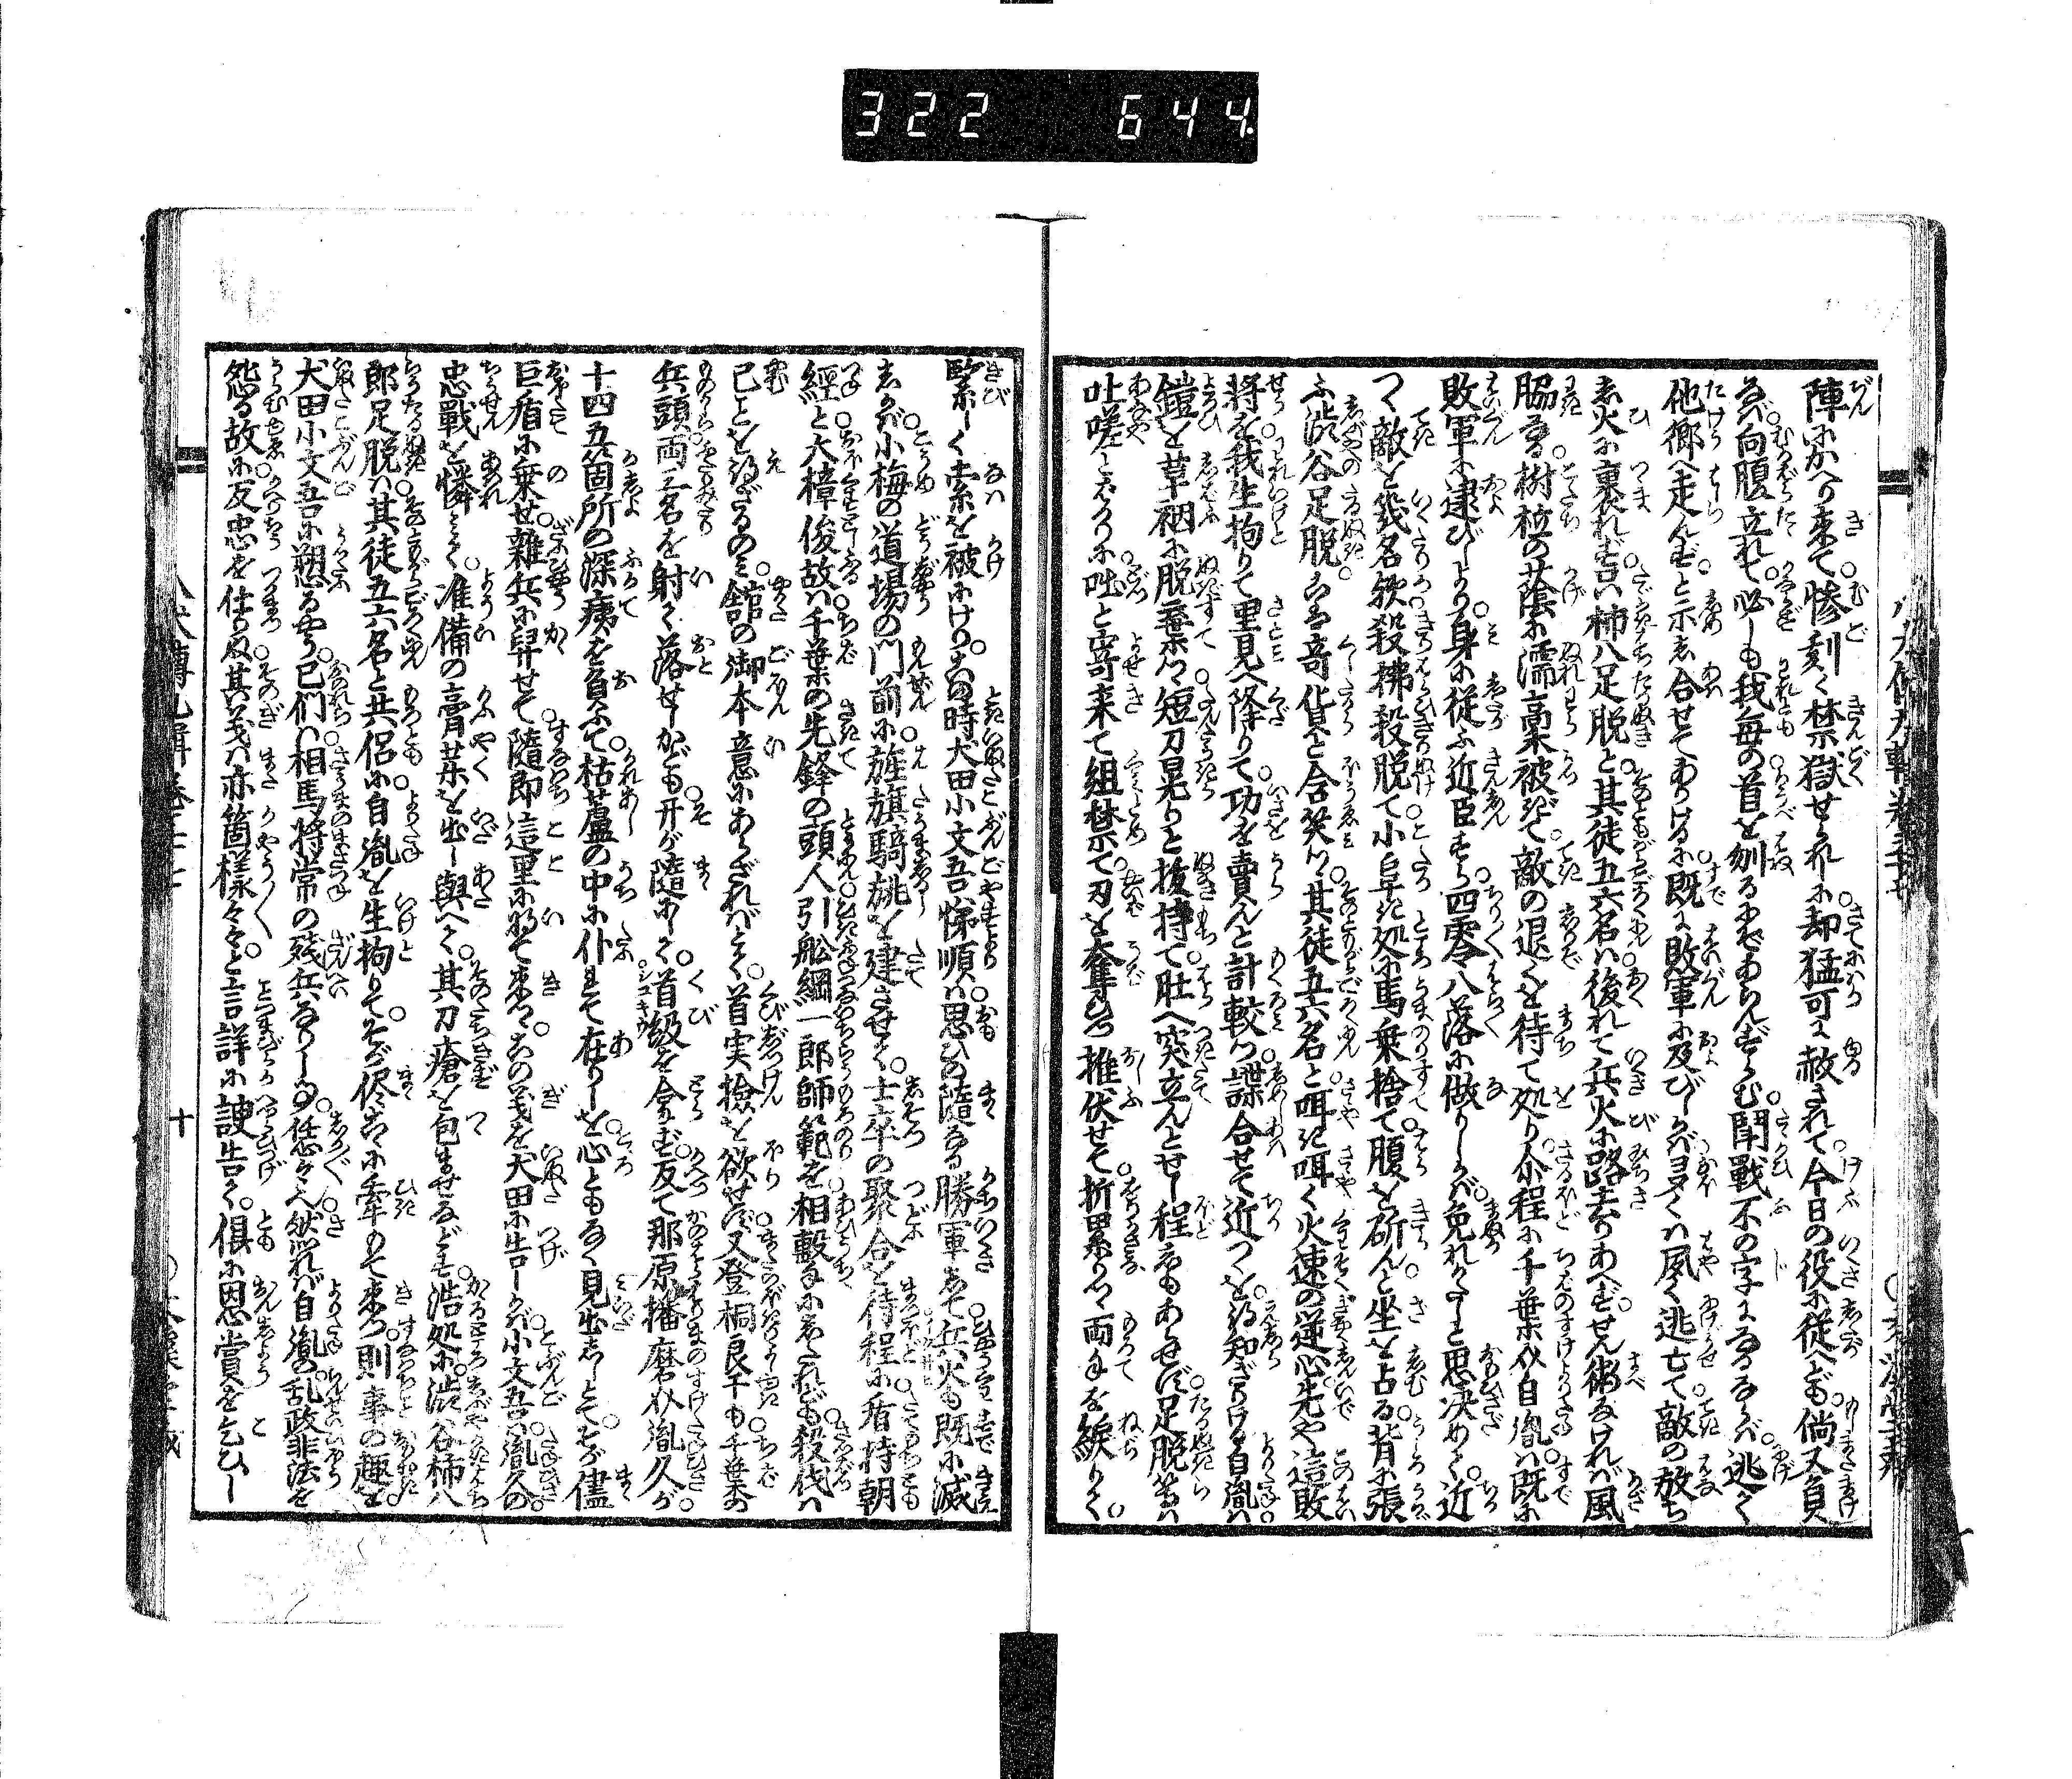 322 644
陣にかへり来て。惨刻く禁獄せられに。却猛可に赦されて。今日の役に従へども。倘又負
なば。向腹立れて。必しも我毎の首を刎るゝまであらんずらむ。闘戦不の字になるならば。逃て
他郷へ走んず。と示し合せてありけるに。既に敗軍に及びしかば。夛くは夙く逃亡て。敵の放ち
し火に裹れず。吉は柿八足脱と。其徒五六名は。後れて兵火に路去りあへず。せん術なければ。風
脇なる。樹柆の蔭に濡藁被ぎて。敵の退くを待て処り。介程に千葉介自胤は。既に
敗軍に逮びしより。身に従ふ近臣すら。四零八落に做りしかば。免れがたしと思決めて。近
つく敵を幾名欤。殺拂ひ殺脱て。小阜き処に馬乗捨て。腹を斫んと坐を占る。背に張
ふ渋谷足脱。こは奇貨と含笑つゝ。其徒五六名と。咡き咡く火速の逆心。先や這敗
将を。我生拘りて里見へ降りて。功を賣んと計較つ。諜合せて近つくを。得知ざりける自胤は。
鎧を草裀に脱棄つゝ。短刀晃りと抜持て。肚へ突立んとせし程に。しもあらせず足脱等は。
吐嗟とばかりに咄と寄来て。組禁て刃を奪ひつ。推伏せて折累りつゝ。両手を綟りて。
緊しく索を被にけり。この時犬田小文吾悌順は。思ひの隨なる勝軍して。兵火も既に滅
しかば。小梅の道場の門前に。旌旗騎旐を建させて。士卒の聚合を待程に。盾持朝
經と。大樟俊故は。千葉の先鋒の頭人。引舩綱一郎師範を。相轂手にしたれども。殺伐は
已ことを得ざるのみ。舘の御本意にあらざればとて。首実撿を欲せず。又登桐良于も千葉の
兵頭。両三名を射て落せしかども。开が隨にして。首級を今ず。反て那原播磨介胤久が。
十四五箇所の深痍を負ふて。枯蘆の中に仆れて在りしを。心ともなく見出しとて。そが儘
巨盾に乗せ。雜兵に舁せて。隨即這里に将て来つ。この義を犬田に告しかば。小文吾は。胤久の
忠戰を憐みて。准備の膏薬を出し與へて。其刀瘡を包ませなどす。浩処に。渋谷柿八
郎足脱は。其徒五六名と共侶に。自胤を生拘りて。そが侭こゝに牽もて来つ。則事の趣を。
犬田小文吾に愬るやう。己們は相馬将常の残兵なりしが。恁々。然れば自胤の乱政非法を
怨る故に反忠を仕りぬ。其義は亦箇様々々。と言詳に謏告て。倶に恩賞を乞ひし
十